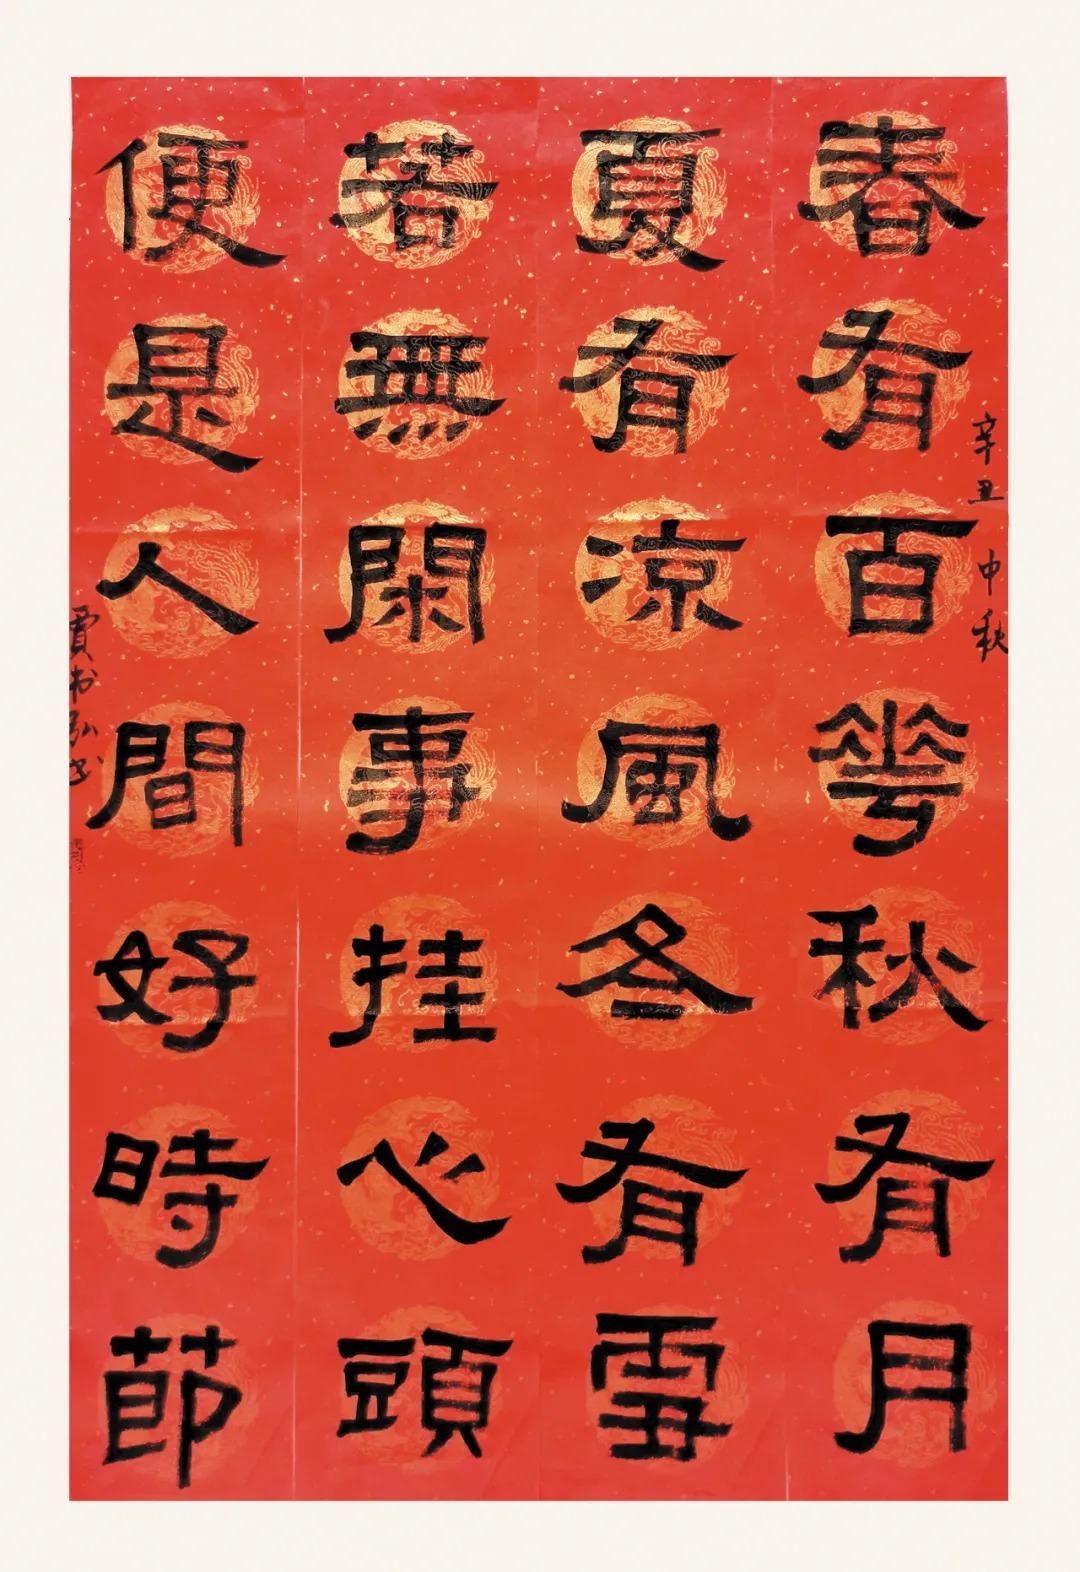 春有百花秋有月
夏有凉風冬有雪
若無閑事挂心頭
便是人間好時節
辛丑
中秋
賈书弘书